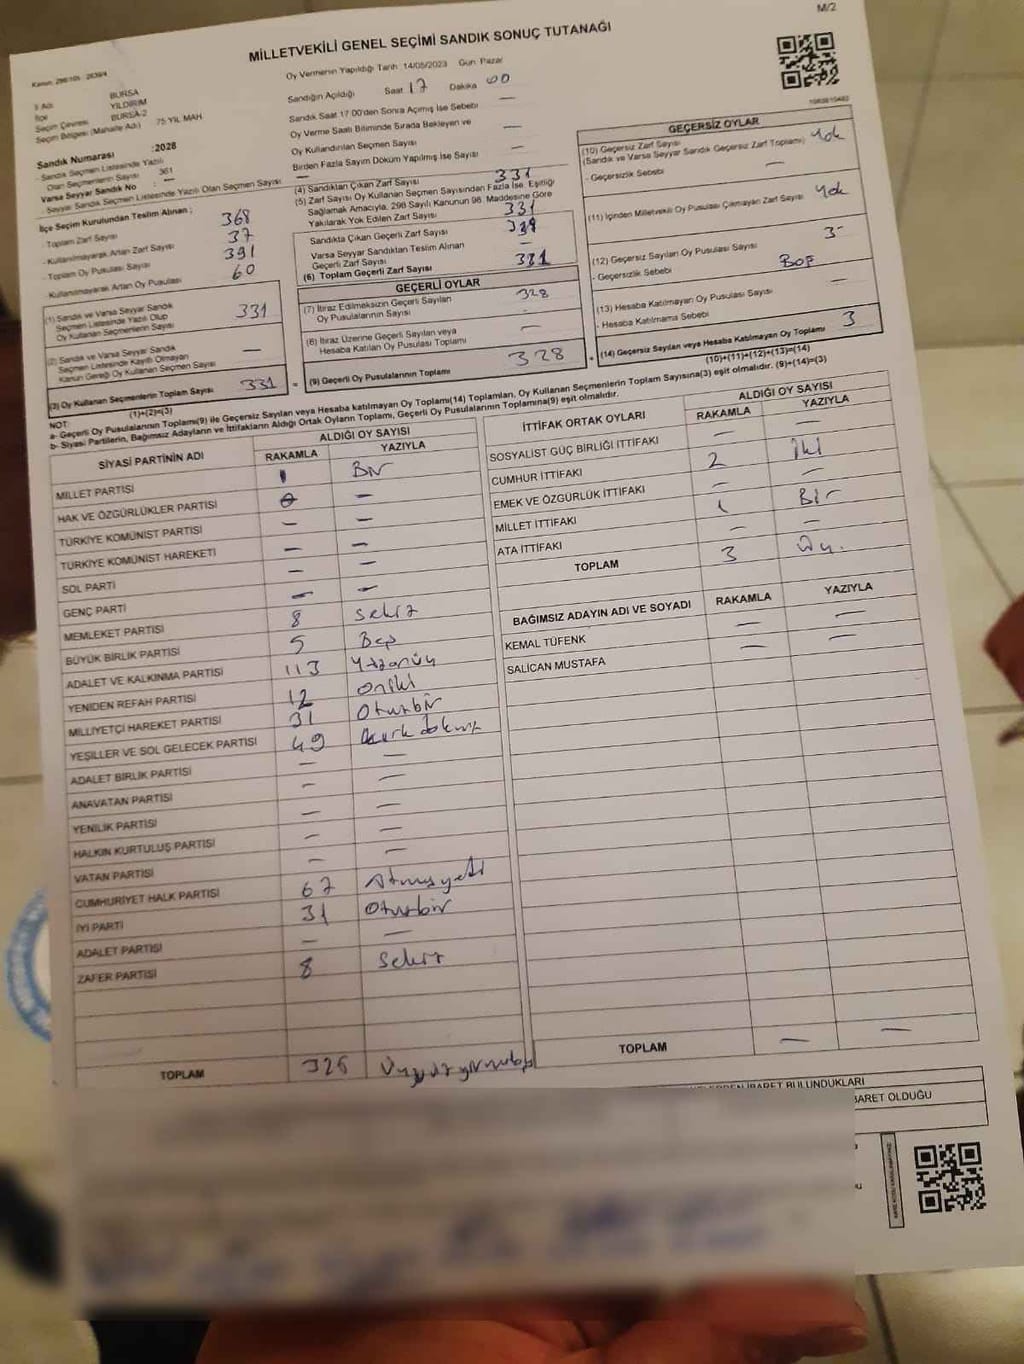 M/2
MİLLETVEKİLİ GENEL SEÇİMİ SANDIK SONUÇ TUTANAĞI
Kanun: 298/105 - 2839/4
Oy Vermenin Yapıldığı Tarih :14/05/2023 Gün: Pazar
İl Adı BURSA
İlçe YILDIRIM
Seçim Çevresi BURSA-2
Seçim Bölgesi (Mahalle Adı) 75 YIL MAH
Sandık Numarası :2028
Sandık Seçmen Listesinde Yazılı
Olan Seçmenlerin Sayısı 361
Varsa Seyyar Sandık No : —
Seyyar Sandık Seçmen Listesinde Yazılı Olan Seçmen Sayısı —
Sandığın Açıldığı Saat 17 Dakika 00
Sandık Saat 17:00'den Sonra Açılmış İse Sebebi —
Oy Verme Saati Bitiminde Sırada Bekleyen ve
Oy Kullandırılan Seçmen Sayısı —
Birden Fazla Sayım Döküm Yapılmış İse Sayısı —
İlçe Seçim Kurulundan Teslim Alınan ;
- Toplam Zarf Sayısı 368
- Kullanılmayarak Artan Zarf Sayısı 37
- Toplam Oy Pusulası Sayısı 391
- Kullanılmayarak Artan Oy Pusulası 60
(1) Sandık ve Varsa Seyyar Sandık
Seçmen Listesinde Yazılı Olup
Oy Kullanan Seçmenlerin Sayısı 331
(2) Sandık ve Varsa Seyyar Sandık
Seçmen Listesinde Kayıtlı Olmayan
Kanun Gereği Oy Kullanan Seçmen Sayısı —
(3) Oy Kullanan Seçmenlerin Toplam Sayısı 331
(1)+(2)=(3)
(4) Sandıktan Çıkan Zarf Sayısı 331
(5) Zarf Sayısı Oy Kullanan Seçmen Sayısından Fazla İse, Eşitliği
Sağlamak Amacıyla, 298 Sayılı Kanunun 98. Maddesine Göre
Yakılarak Yok Edilen Zarf Sayısı 331
Sandıkta Çıkan Geçerli Zarf Sayısı
Varsa Seyyar Sandıktan Teslim Alınan
Geçerli Zarf Sayısı —
(6) Toplam Geçerli Zarf Sayısı 331
GEÇERLİ OYLAR
(7) İtiraz Edilmeksizin Geçerli Sayılan
Oy Pusulalarının Sayısı 328
(8) İtiraz Üzerine Geçerli Sayılan veya
Hesaba Katılan Oy Pusulası Toplamı —
(9) Geçerli Oy Pusulalarının Toplamı 328
GEÇERSİZ OYLAR
(10) Geçersiz Zarf Sayısı
(Sandık ve Varsa Seyyar Sandık Geçersiz Zarf Toplamı) Yok
- Geçersizlik Sebebi —
(11) İçinden Milletvekili Oy Pusulası Çıkmayan Zarf Sayısı Yok
(12) Geçersiz Sayılan Oy Pusulası Sayısı 3-
- Geçersizlik Sebebi Boş
(13) Hesaba Katılmayan Oy Pusulası Sayısı —
- Hesaba Katılmama Sebebi
(14) Geçersiz Sayılan veya Hesaba Katılmayan Oy Toplamı 3
(10)+(11)+(12)+(13)=(14)
NOT:
a- Geçerli Oy Pusulalarının Toplamı(9) ile Geçersiz Sayılan veya Hesaba katılmayan Oy Toplamı(14) Toplamları, Oy Kullanan Seçmenlerin Toplam Sayısına(3) eşit olmalıdır. (9)+(14)=(3)
b- Siyasi Partilerin, Bağımsız Adayların ve İttifakların Aldığı Ortak Oyların Toplamı, Geçerli Oy Pusulalarının Toplamına(9) eşit olmalıdır.
SİYASİ PARTİNİN ADI ALDIĞI OY SAYISI
RAKAMLA YAZIYLA
MİLLET PARTİSİ 1 Bir
HAK VE ÖZGÜRLÜKLER PARTİSİ —
TÜRKİYE KOMÜNİST PARTİSİ — —
TÜRKİYE KOMÜNİST HAREKETİ — —
SOL PARTİ — —
GENÇ PARTİ — —
MEMLEKET PARTİSİ 8 Sekiz
BÜYÜK BİRLİK PARTİSİ 5 Beş
ADALET VE KALKINMA PARTİSİ 113 Yüzonüç
YENİDEN REFAH PARTİSİ 12 Oniki
MİLLİYETÇİ HAREKET PARTİSİ 31 Oturbir
YEŞİLLER VE SOL GELECEK PARTİSİ 49
ADALET BİRLİK PARTİSİ — —
ANAVATAN PARTİSİ — —
YENİLİK PARTİSİ — —
HALKIN KURTULUŞ PARTİSİ — —
VATAN PARTİSİ — —
CUMHURİYET HALK PARTİSİ 67 Atmışyedi
İYİ PARTİ 31 Oturbir
ADALET PARTİSİ — —
ZAFER PARTİSİ 8 Sekiz
TOPLAM 325
İTTİFAK ORTAK OYLARI ALDIĞI OY SAYISI
RAKAMLA YAZIYLA
SOSYALİST GÜÇ BİRLİĞİ İTTİFAKI — —
CUMHUR İTTİFAKI 2 İki
EMEK VE ÖZGÜRLÜK İTTİFAKI — —
MİLLET İTTİFAKI 1 Bir
ATA İTTİFAKI — —
TOPLAM 3 Üç.
BAĞIMSIZ ADAYIN ADI VE SOYADI RAKAMLA YAZIYLA
KEMAL TÜFENK — —
SALİCAN MUSTAFA — —
TOPLAM — —
İBARET BULUNDUKLARI
BARET OLDUĞU